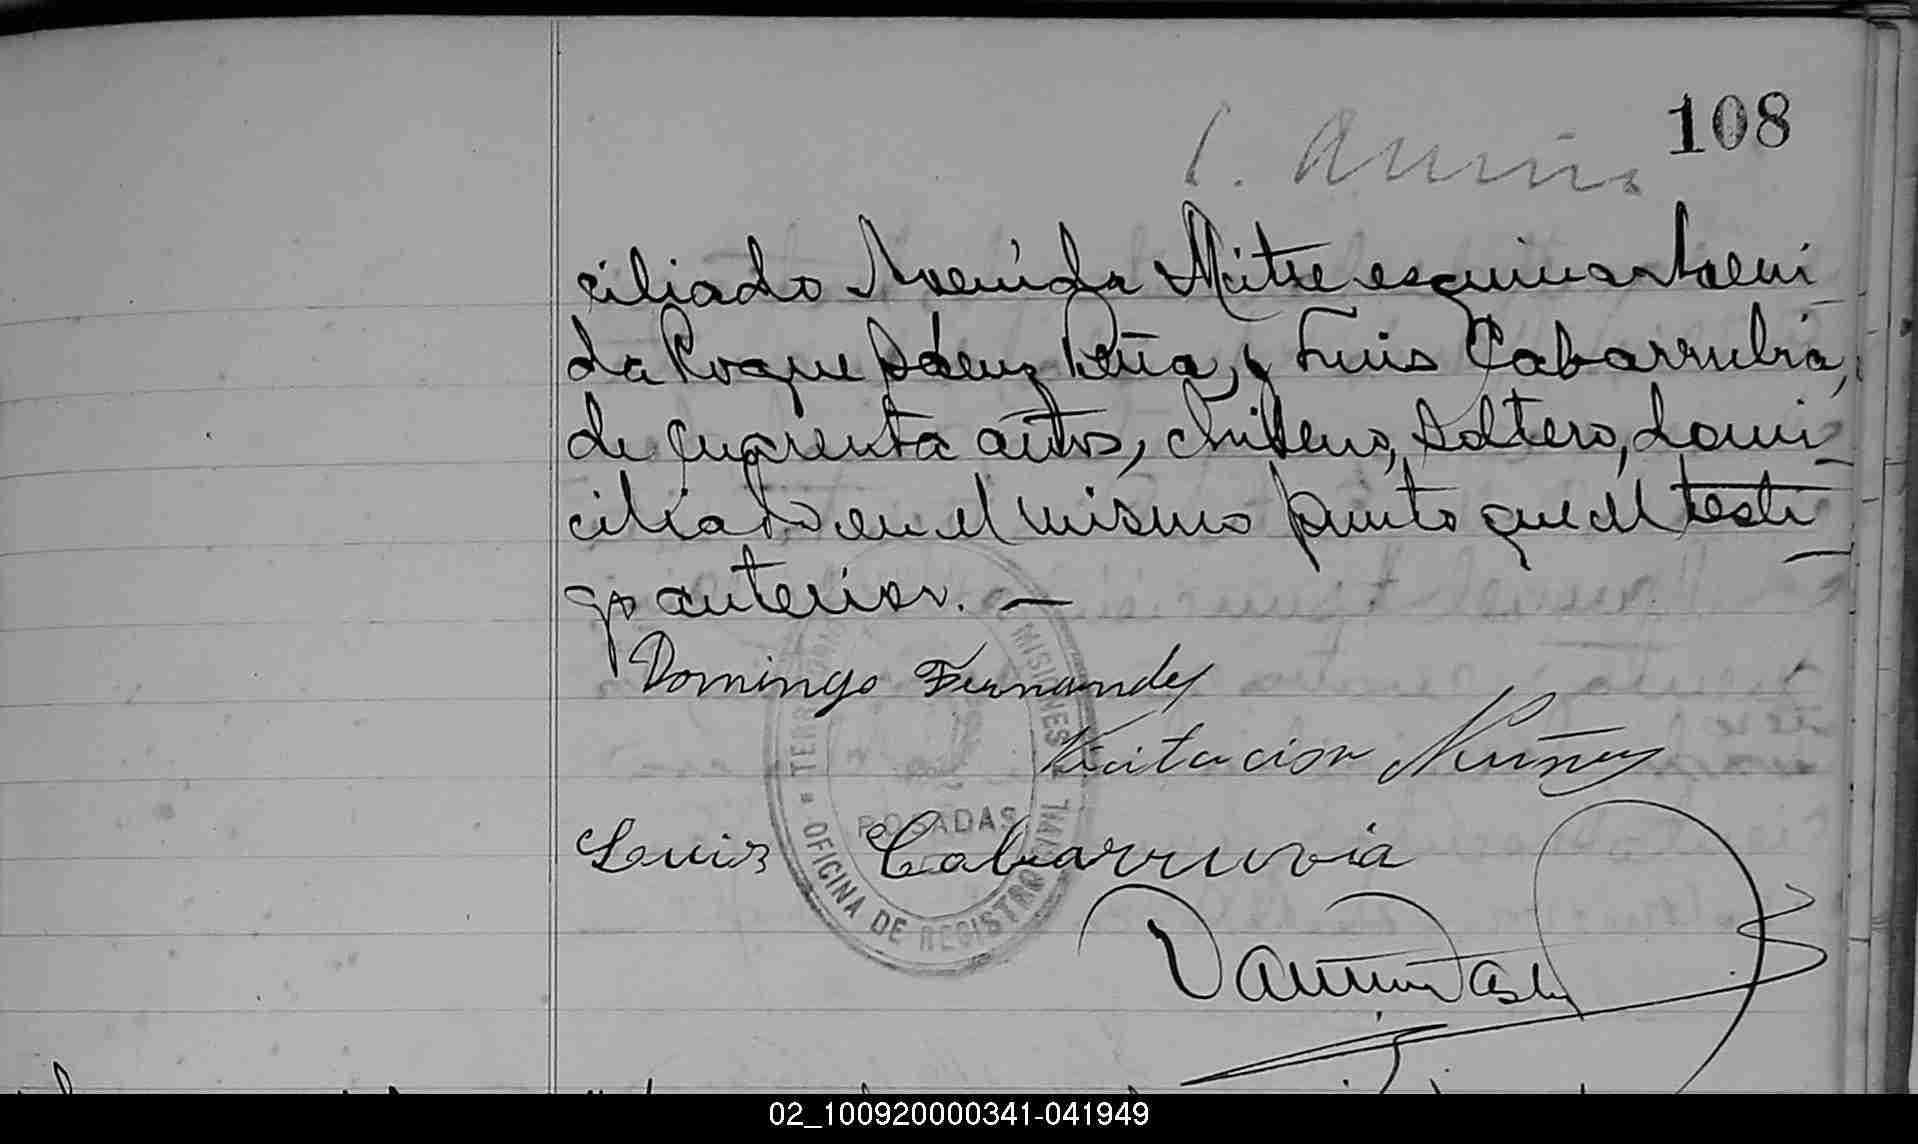 108
ciliado Avenida Mitre esquina Aveni
da Roque Saenz Peña, y Luis Cabarrubia,
de cuarenta años, chileno, soltero, domi
ciliado en el mismo punto que el testi
go anterior. —
Domingo Fernandez
Vicitacion Nuñez
Luis Cabarruvia
TERRITORIO MISIONES
POSADAS
OFICINA DE REGISTRO CIVIL
02_100920000341-041949